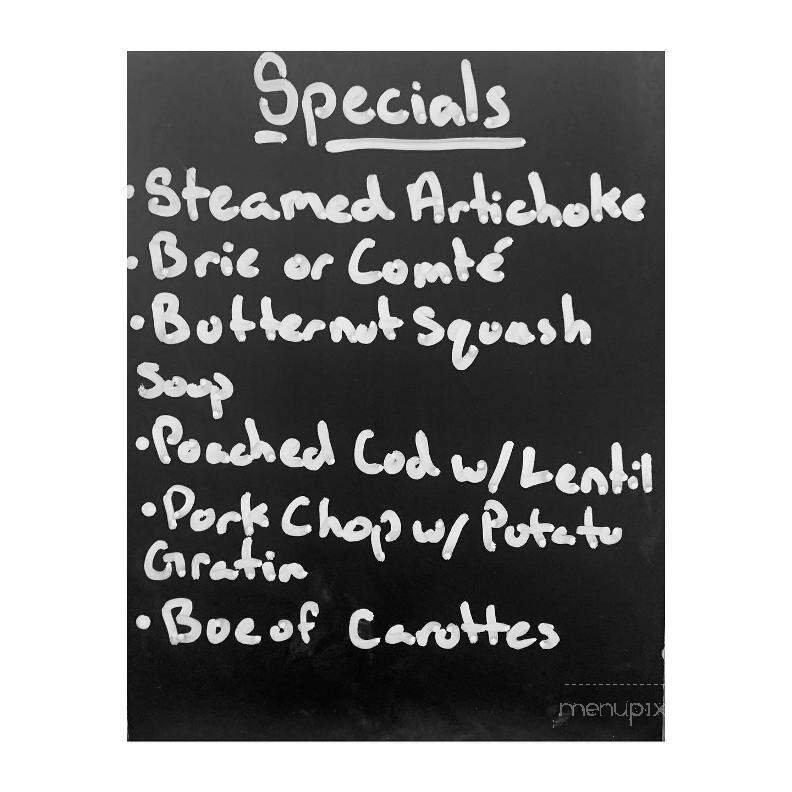 Specials
• Steamed Artichoke
• Brie or Comté
• Butternut Squash
Soup
• Poached Cod w/ Lentil
• Pork Chop w/ Potato
Gratin
• Boeof Carottes
menupix